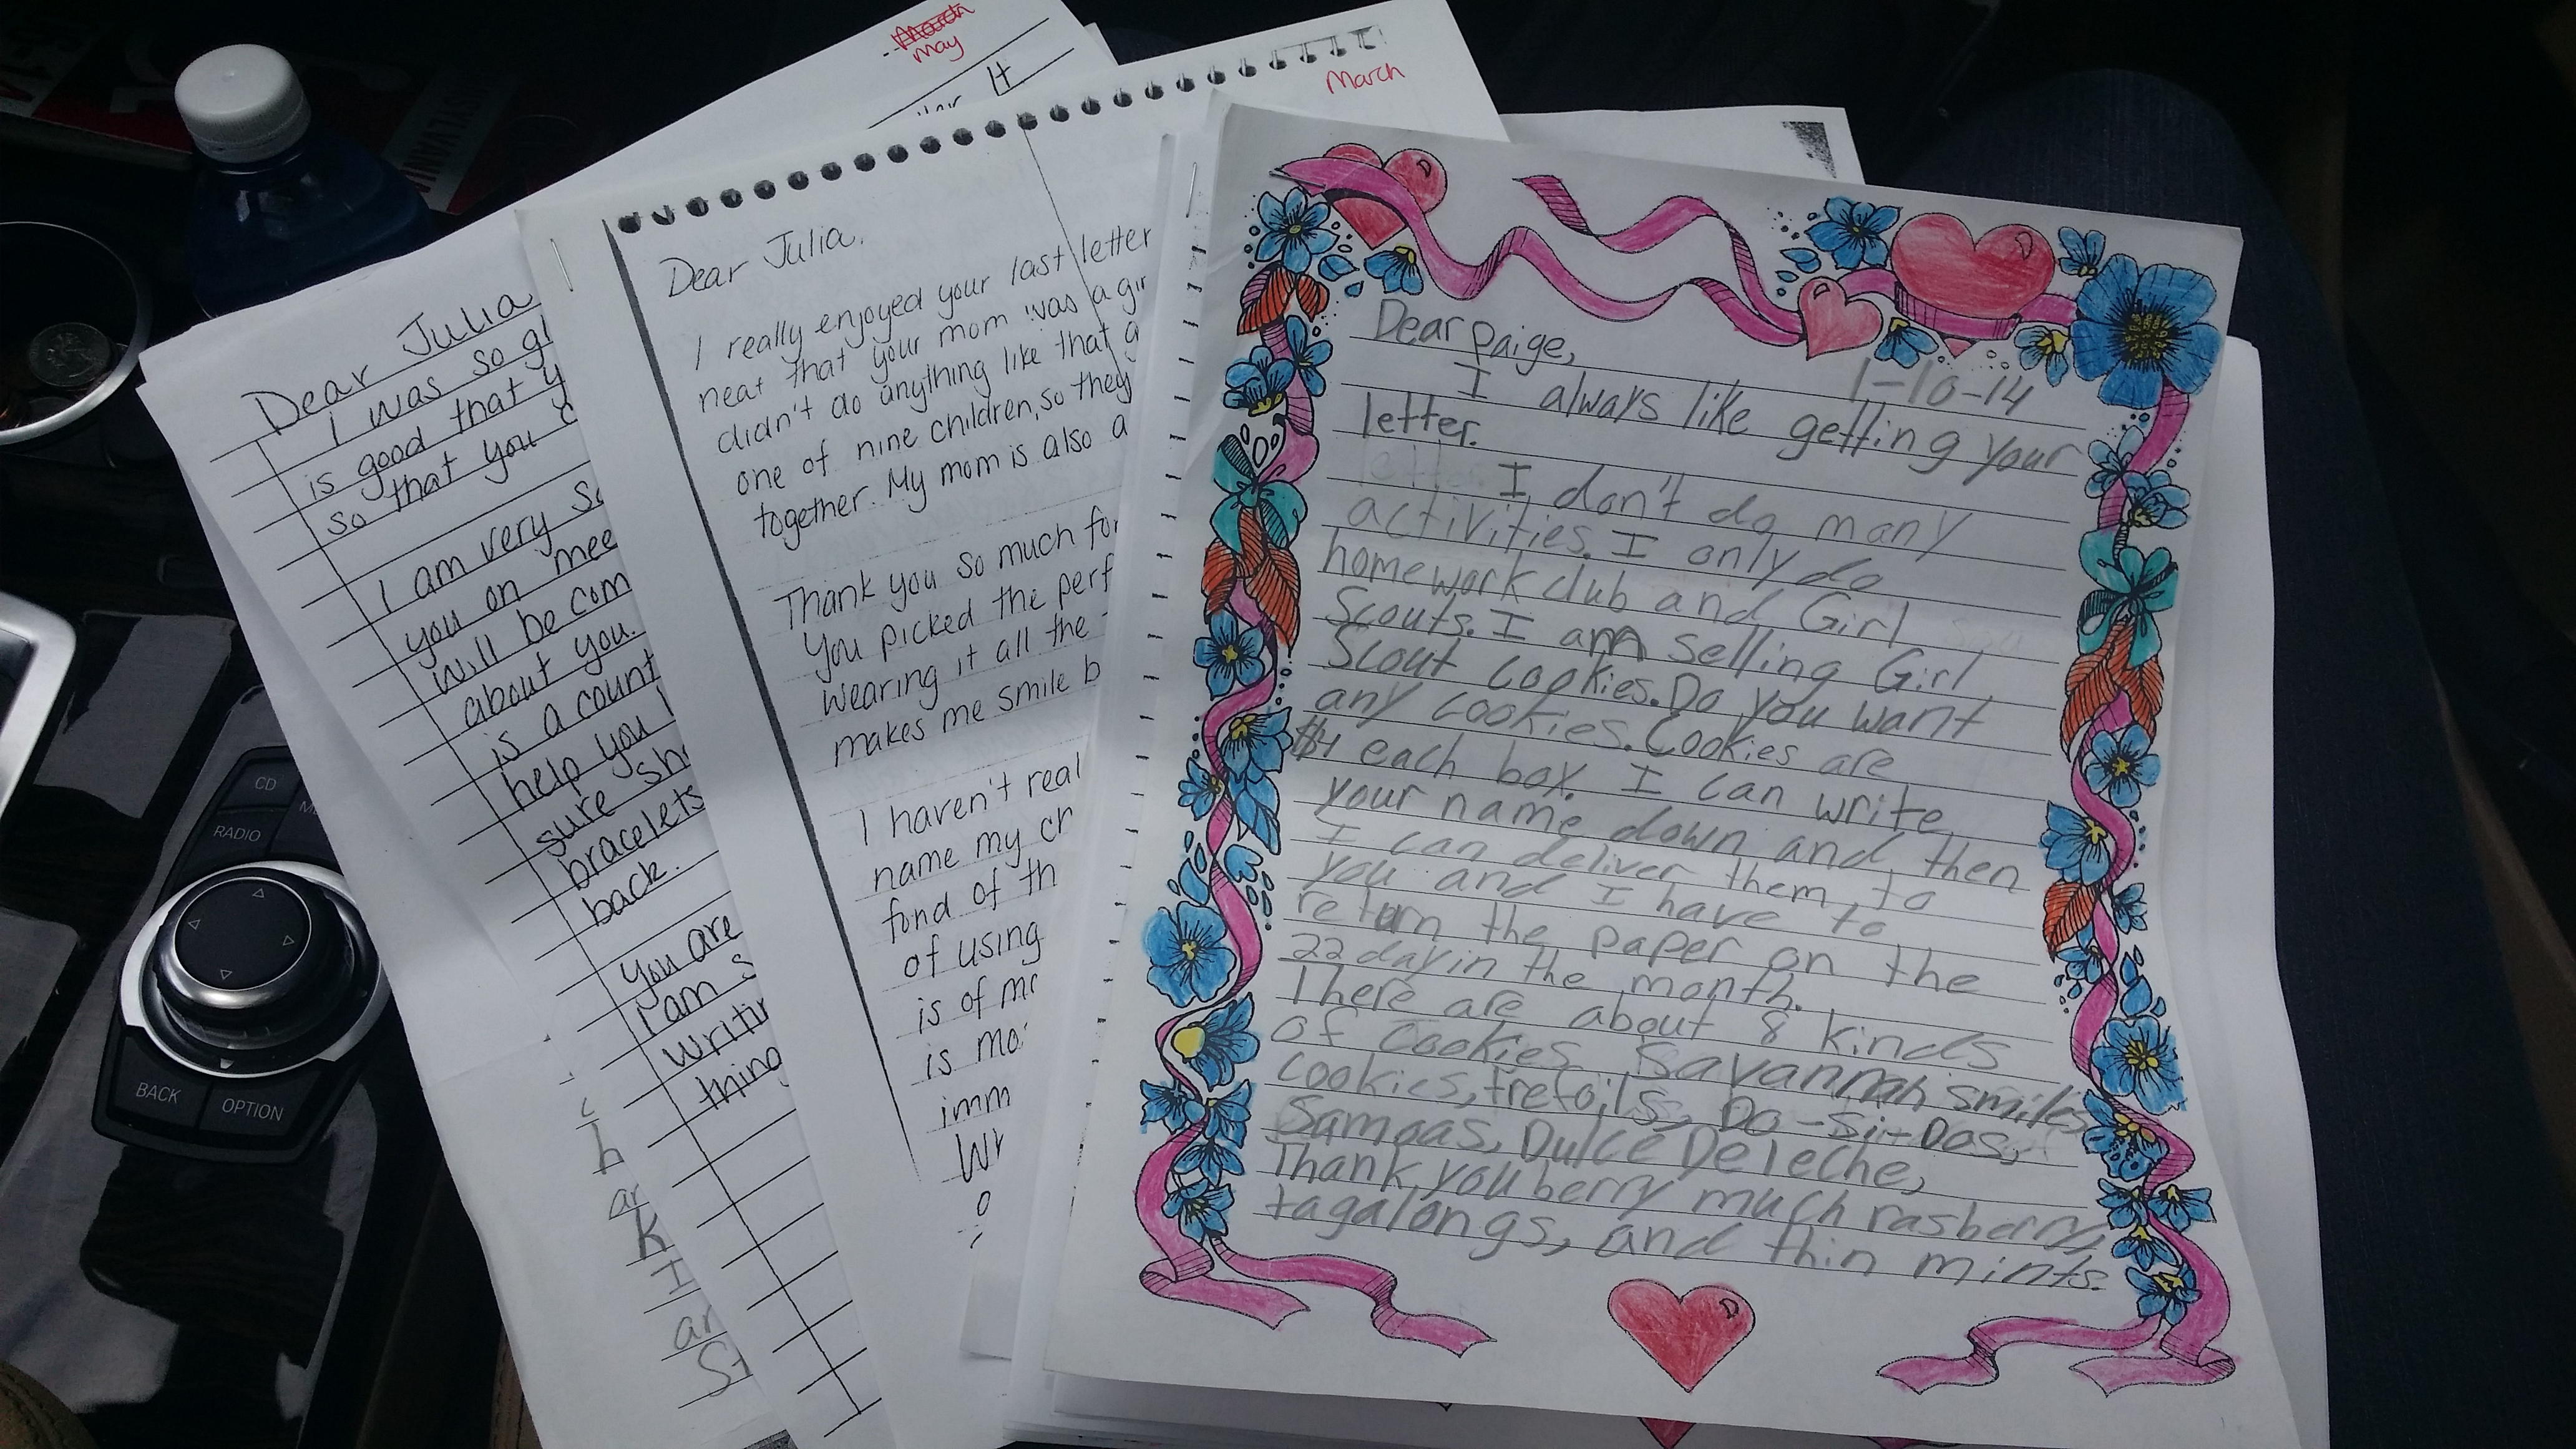 March
May
Dear Julia
I was so gl
is good that y
so that you c
I am very so
you on mee
will be com
about you.
is a count
help you
sure sh
bracelets
back.
You are
I am s
writin
thing
March
Dear Julia,
I really enjoyed your last letter
neat that your mom was a gir
didn't do anything like that a
one of nine children, so they
together. My mom is also a
Thank you so much for
You picked the perf
wearing it all the
makes me smile b
I haven't real
name my ch
fond of th
of using
is of mo
is mo
imm
Wr
Dear paige,
1-10-14
I always like getting your
letter.
I don't do many
activities. I only do
homework club and Girl
Scouts. I am selling Girl
Scout cookies. Do you want
any cookies. Cookies are
$4 each box. I can write
your name down and then
I can deliver them to
you and I have to
return the paper on the
22 day in the month.
There are about 8 kinds
of Cookies Savannah smiles
cookies, trefoils, Do-Si-Dos,
Samoas, Dulce De Leche,
Thank you berry much rasberry,
tagalongs, and thin mints.
CD
RADIO
BACK
OPTION